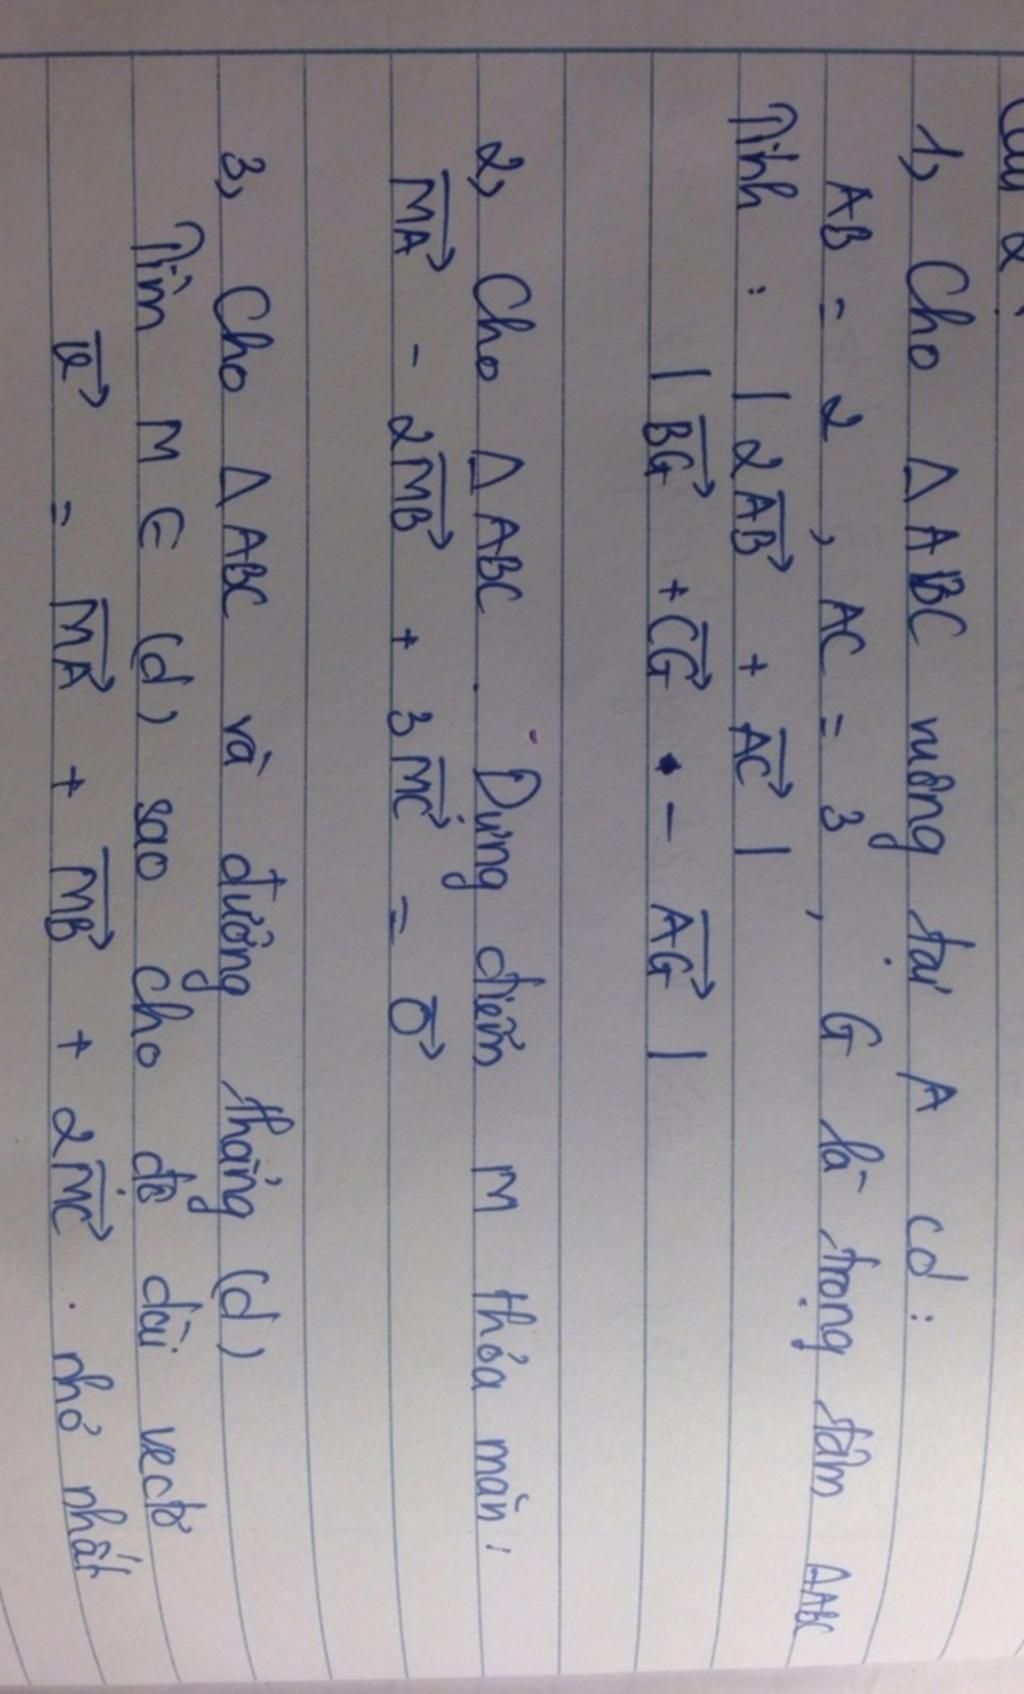 Câu 2:
1, Cho Δ ABC vuông tại A có:
AB = 2, AC = 3, G là trọng tâm ΔABC
Tính: | 2\overrightarrow{AB} + \overrightarrow{AC} |
| \overrightarrow{BG} + \overrightarrow{CG} - \overrightarrow{AG} |
2, Cho Δ ABC. Dựng điểm M thỏa mãn:
\overrightarrow{MA} - 2\overrightarrow{MB} + 3\overrightarrow{MC} = \overrightarrow{0}
3, Cho Δ ABC và đường thẳng (d)
Tìm M ∈ (d) sao cho độ dài vectơ
\overrightarrow{u} = \overrightarrow{MA} + \overrightarrow{MB} + 2\overrightarrow{MC} nhỏ nhất